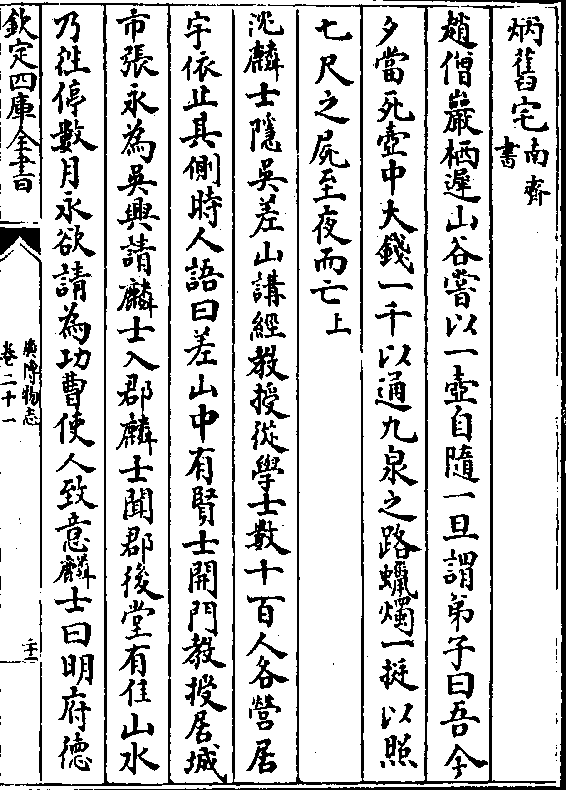 炳舊宅南齊書
趙僧巖栖遲山谷嘗以一壺自隨一旦謂弟子曰吾今
夕當死壺中大錢一千以通九泉之路蠟燭一挺以照
七尺之屍至夜而亡上
沈麟士隱吳差山講經教授從學士數十百人各營居
宇依止其側時人語曰差山中有賢士開門教授居城
市張永為吳興請麟士入郡麟士聞郡後堂有佳山水
乃往停數月永欲請為功曹使人致意麟士曰明府德
欽定四庫全書
廣博物志
卷二十一
二十二